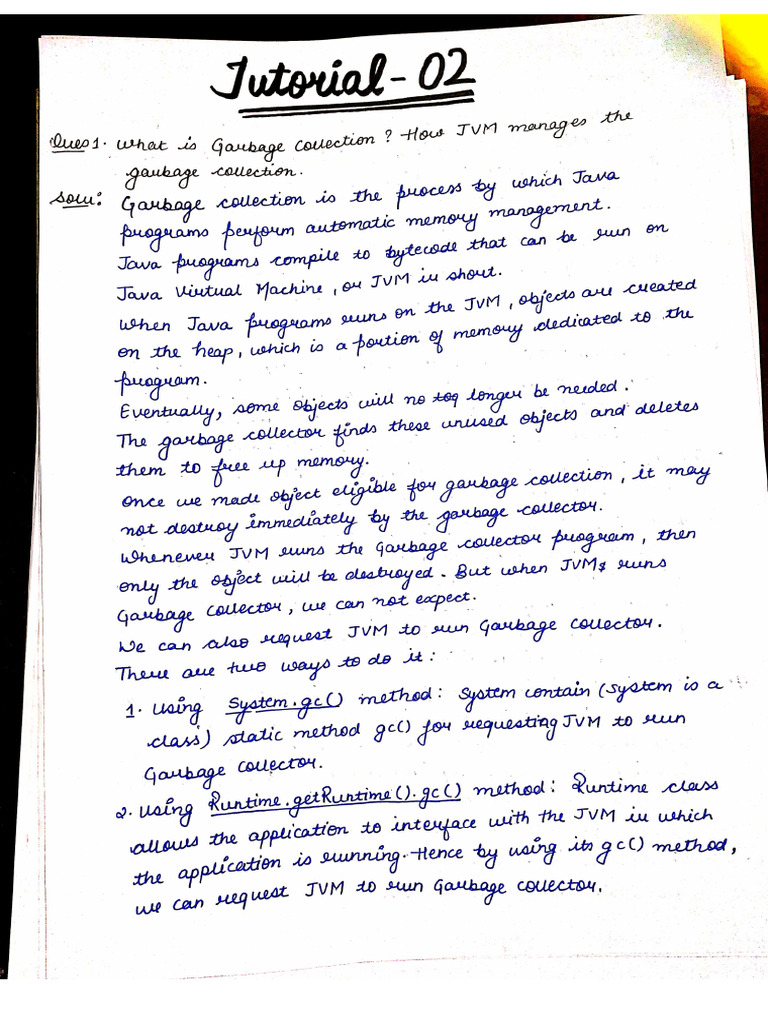 Tutorial-02
Ques1. What is Garbage Collection? How JVM manages the
garbage collection.
Solu: Garbage collection is the process by which Java
programs perform automatic memory management.
Java programs compile to bytecode that can be run on
Java Virtual Machine, or JVM in short.
When Java programs runs on the JVM, objects are created
on the heap, which is a portion of memory dedicated to the
program.
Eventually, some objects will no log longer be needed.
The garbage collector finds these unused objects and deletes
them to free up memory.
Once we made object eligible for garbage collection, it may
not destroy immediately by the garbage collector.
Whenever JVM runs the Garbage collector program, then
only the object will be destroyed. But when JVM runs
Garbage Collector, we can not expect.
We can also request JVM to run Garbage Collector.
There are two ways to do it:
1. Using System.gc() method: System contain (System is a
class) static method gc() for requesting JVM to run
Garbage Collector.
2. Using Runtime.getRuntime().gc() method: Runtime class
allows the application to interface with the JVM in which
the application is running. Hence by using its gc() method,
we can request JVM to run Garbage Collector.